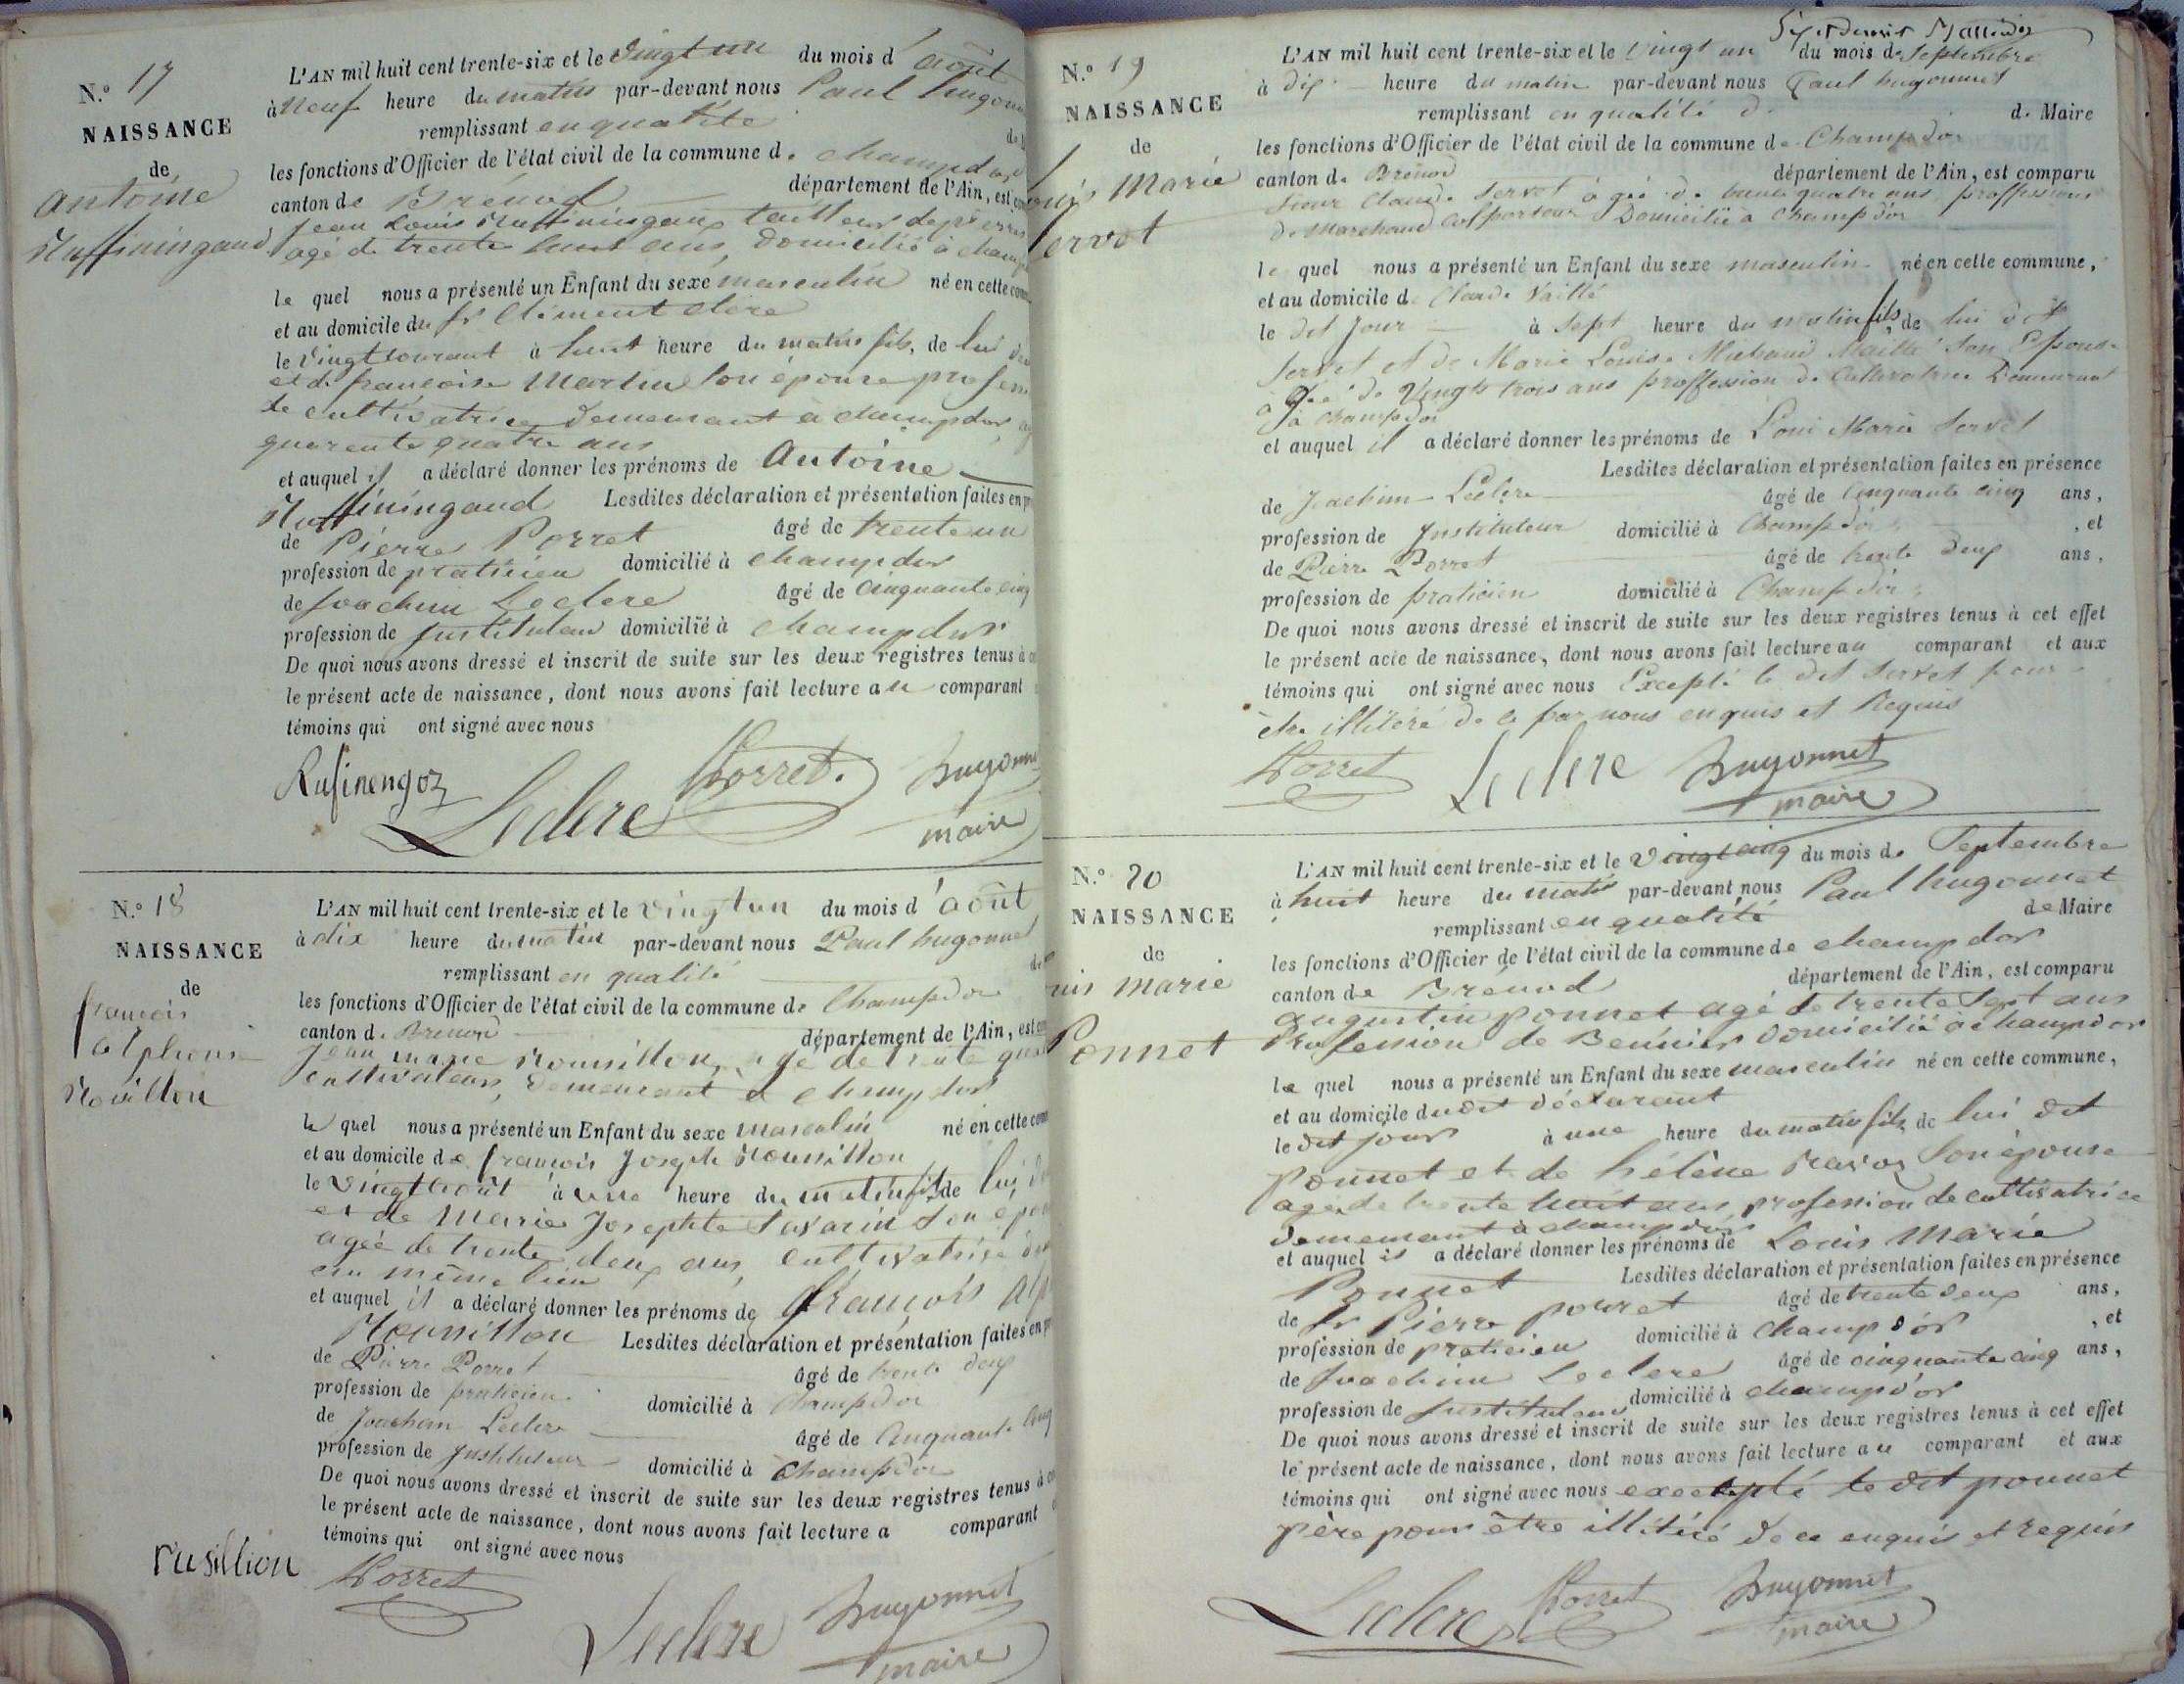 N.° 17
NAISSANCE
de
antoine
Ruffiningaud
L'AN mil huit cent trente-six et le vingt un du mois d'août
à neuf heure du matin par-devant nous Paul hugonn
remplissant en qualité de
les fonctions d'Officier de l'état civil de la commune de champdor
canton de Brénod département de l'Ain, est
Jean Louis Ruffiningaud tailleur de pierres
agé de trente huit ans, domicilié à champ
le quel nous a présenté un Enfant du sexe masculin né en cette com
et au domicile du sr Clément clère
le vingt courant à huit heure du matin fils, de lui
et de françoise Martin son épouse profess
de cultivatrice demeurant à champdor
quarente quatre ans
et auquel il a déclaré donner les prénoms de Antoine
Ruffiningaud Lesdites déclaration et présentation faites en p
de Pierre Porret âgé de trente un
profession de praticien domicilié à champdor
de Joachim Leclere âgé de cinquante cinq
profession de Instituteur domicilié à champdor
De quoi nous avons dressé et inscrit de suite sur les deux registres tenus à
le présent acte de naissance, dont nous avons fait lecture au comparant
témoins qui ont signé avec nous
Rufinengoz Leclere Porret. hugonn
maire
N.° 18
NAISSANCE
de
françois
alphonse
Rousillon
L'AN mil huit cent trente-six et le vingt un du mois d'août
à dix heure du matin par-devant nous Paul hugonnet
remplissant en qualité de
les fonctions d'Officier de l'état civil de la commune de Champdor
canton de Brenod département de l'Ain, est
Jean marie Roussillon, agé de trente
cultivateur, demeurant à champdor
le quel nous a présenté un Enfant du sexe masculin né en cette com
et au domicile de françois Joseph Roussillon
le vingt août à une heure du matin fils de lui
et de Marie Josephte Savarin son épou
agée de trente deux ans, cultivatrice
au même lieu
et auquel il a déclaré donner les prénoms de françois Alp
Roussillon Lesdites déclaration et présentation faites en p
de Pierre Porret âgé de trente deux
profession de praticien domicilié à Champdor
de Joachim Leclere âgé de Cinquante Cinq
profession de Instituteur domicilié à Champdor
De quoi nous avons dressé et inscrit de suite sur les deux registres tenus à
le présent acte de naissance, dont nous avons fait lecture a comparant
témoins qui ont signé avec nous
rusillion Porret
Leclere hugonnet
maire
N.° 19
NAISSANCE
de
Louis Marie
Servet
L'AN mil huit cent trente-six et le vingt un du mois de Septembre
à dix heure du matin par-devant nous Paul hugonnet
remplissant en qualité de Maire
les fonctions d'Officier de l'état civil de la commune de Champdor
canton de Brénod département de l'Ain, est comparu
Sieur Claude Servet agé de trente quatre ans, proffession
de Marchand Colporteur Domicilié à Champdor
le quel nous a présenté un Enfant du sexe masculin né en cette commune,
et au domicile de Claude Vaillé
le dit Jour à sept heure du matin fils, de lui dit
Servet et de Marie Louise Michaud Maillé son Epouse
agée de Vingt trois ans proffession de Cultivatrice Demeurant
à Champdor
et auquel il a déclaré donner les prénoms de Loui Marie Servet
Lesdites déclaration et présentation faites en présence
de Joachim Leclere âgé de Cinquante cinq ans,
profession de Instituteur domicilié à Champdor, et
de Pierre Porret âgé de trente deux ans,
profession de praticien domicilié à Champdor
De quoi nous avons dressé et inscrit de suite sur les deux registres tenus à cet effet
le présent acte de naissance, dont nous avons fait lecture au comparant et aux
témoins qui ont signé avec nous Excepté le dit Servet pour
être illitéré de ce par nous enquis et Requis
Porret Leclere hugonnet
maire
N.° 20
NAISSANCE
de
uis marie
Ponnet
L'AN mil huit cent trente-six et le vingt cinq du mois de Septembre
à huit heure du matin par-devant nous Paul hugonnet
remplissant en qualité de Maire
les fonctions d'Officier de l'état civil de la commune de champdor
canton de Brenod département de l'Ain, est comparu
augustin ponnet agé de trente sept ans
Profession de Bennier domicilié à champdor
le quel nous a présenté un Enfant du sexe masculin né en cette commune,
et au domicile du dit déclarant
le dit jour à une heure du matin fils, de lui dit
ponnet et de hélène ravoz son épouse
agée de trente huit ans, profession de cultivatrice
demeurant à champdor
et auquel il a déclaré donner les prénoms de Louis Marie
Ponnet Lesdites déclaration et présentation faites en présence
de sr Pierre porret âgé de trente deux ans,
profession de praticien domicilié à champd'or, et
de Joachim Leclere âgé de cinquante cinq ans,
profession de Instituteur domicilié à champd'or
De quoi nous avons dressé et inscrit de suite sur les deux registres tenus à cet effet
le présent acte de naissance, dont nous avons fait lecture au comparant et aux
témoins qui ont signé avec nous excepté le dit ponnet
père pour être illitéré de ce enquis et requis
Leclere Porret hugonnet
maire